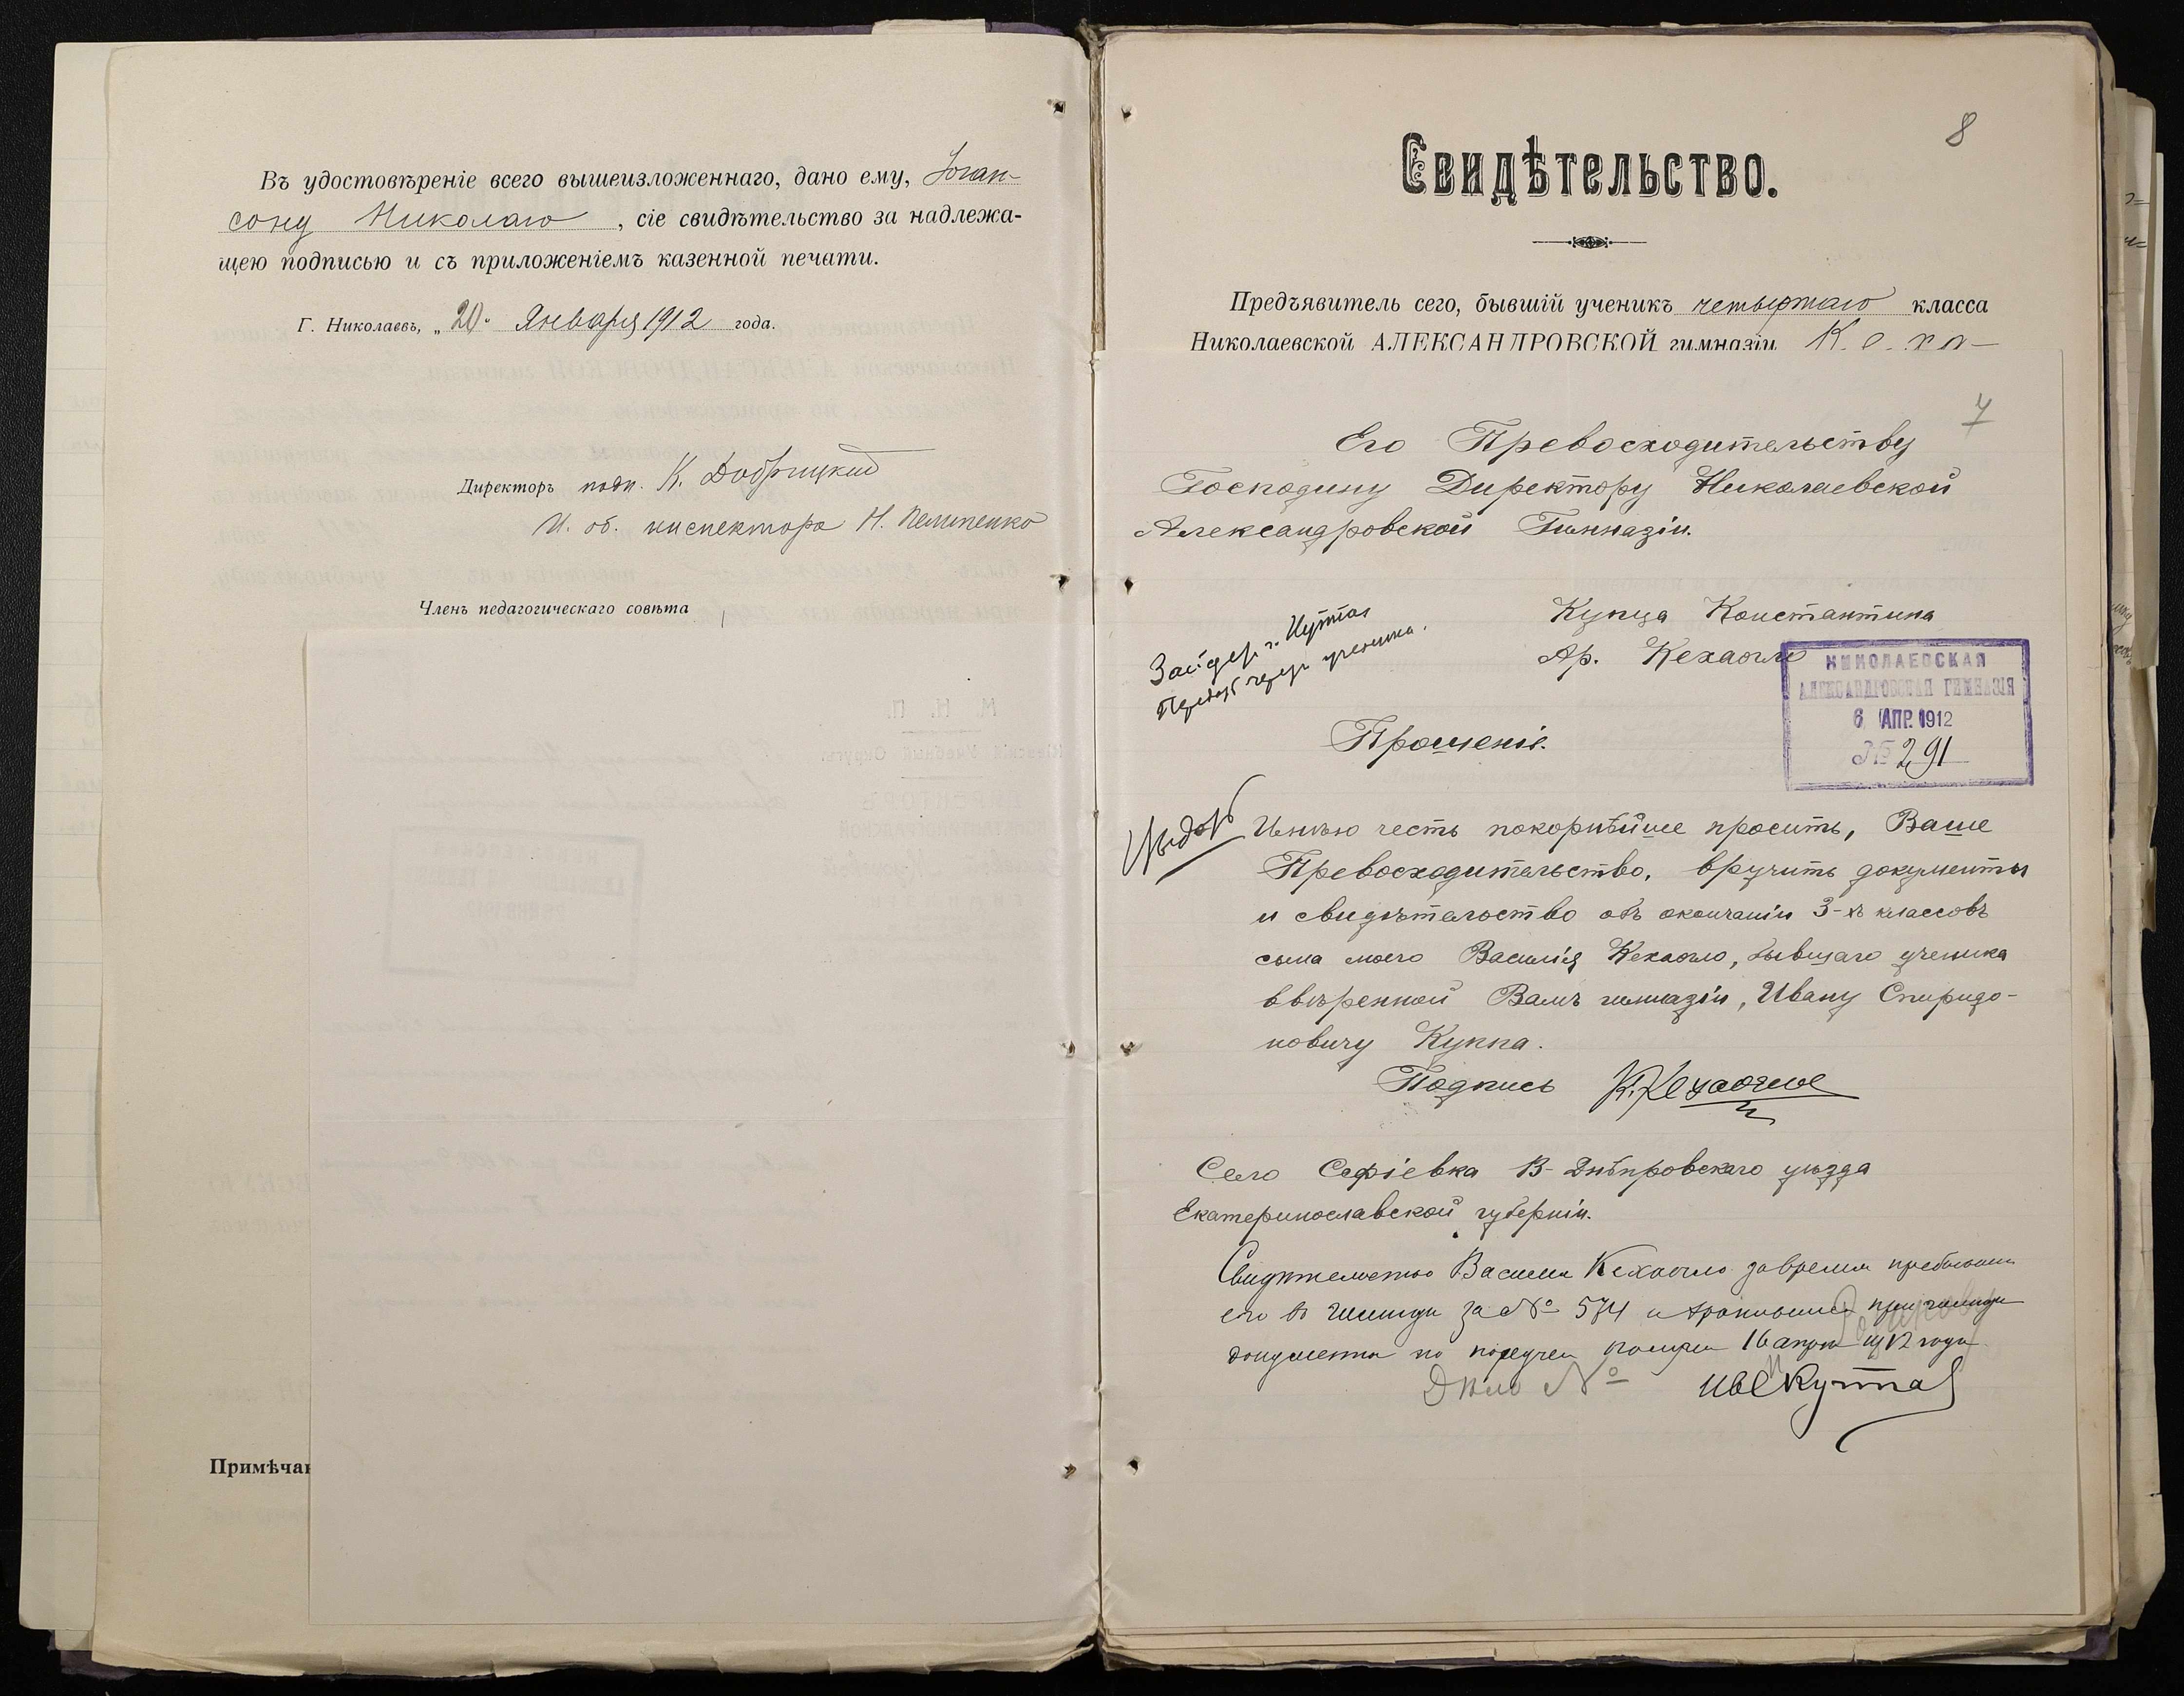 Въ удостовѣреніе всего вышеизложеннаго, дано ему, Іоган-
сону Николаю, сіе свидѣтельство за надлежа-
щею подписью и съ приложеніемъ казенной печати.
Г. Николаевъ, „20" Января 1912 года.
Директоръ подп. К. Добрицкій
И. об. инспектора Н.
Членъ педагогическаго совѣта
Примѣчан
8
Свидѣтельство.
Предъявитель сего, бывшій ученикъ четвертаго класса
Николаевской АЛЕКСАНДРОВСКОЙ гимназіи
7
Его Превосходительству
Господину Директору Николаевской
Александровской Гимназіи.
Купца Константина
Ар. Кехаогло
НИКОЛАЕВСКАЯ
АЛЕКСАНДРОВСКАЯ ГИМНАЗІЯ
6 АПР. 1912
№ 291
ученика.
Прошеніе.
Имѣю честь покорнѣйше просить, Ваше
Превосходительство, вручить документы
и свидѣтельство объ окончаніи 3-хъ классовъ
сына моего Василія Кехаогло, бывшаго ученика
ввѣренной Вамъ гимназіи, Ивану Спиридо-
новичу Куппа.
Подпись К. Кехаогло
Село Софіевка В-Днѣпровскаго уѣзда
Екатеринославской губерніи.
Свидѣтельство Василія Кехаогло за время пребыванія
его въ гимназіи за № 574 и хранившіеся при гимназіи
документы по 16 апрѣля 1912 года
Дѣло № Ив Кутта